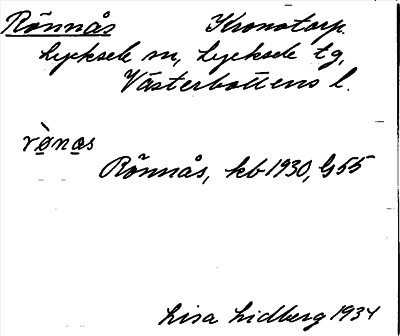 Rönnås Kronotorp.
Lycksele sn, Lycksele tg,
Västerbottens l.
rö̀nas
Rönnås, kb 1930, G55
Lisa Lidberg 1934